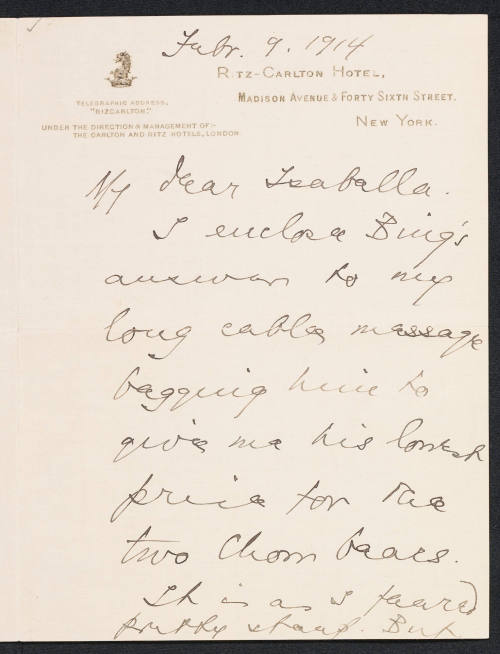 Febr. 9. 1914
RITZ-CARLTON HOTEL,
MADISON AVENUE & FORTY SIXTH STREET.
NEW YORK.
TELEGRAPHIC ADDRESS,
"RIZCARLTON."
UNDER THE DIRECTION & MANAGEMENT OF:-
THE CARLTON AND RITZ HOTELS, LONDON
My dear Isabella.
I enclose Bing's
answer to my
long cable message
begging him to
give me his lowest
price for the
two Chow bears.
It is as I feared
pretty steep. But